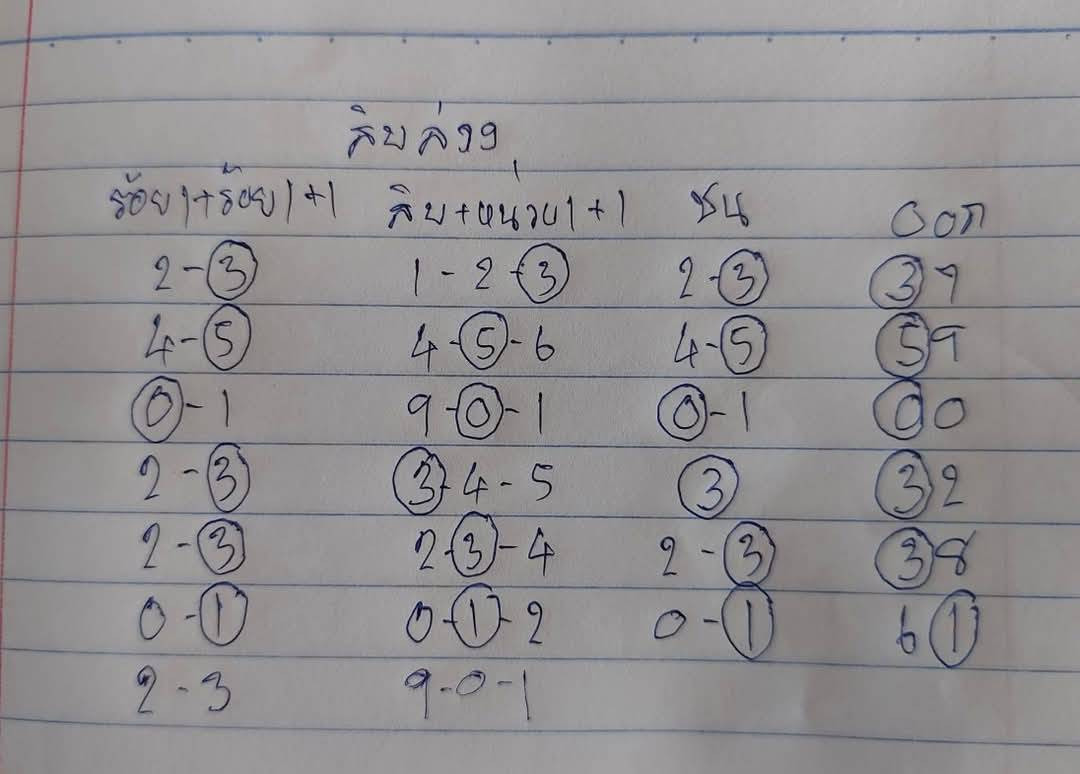 สิบล่าง
ร้อย1+ร้อย1+1 สิบ+หน่วย1+1 ชน ออก
2-3 1-2-3 2-3 37
4-5 4-5-6 4-5 59
0-1 9-0-1 0-1 00
2-3 3-4-5 3 32
2-3 2-3-4 2-3 38
0-1 0-1-2 0-1 61
2-3 9-0-1